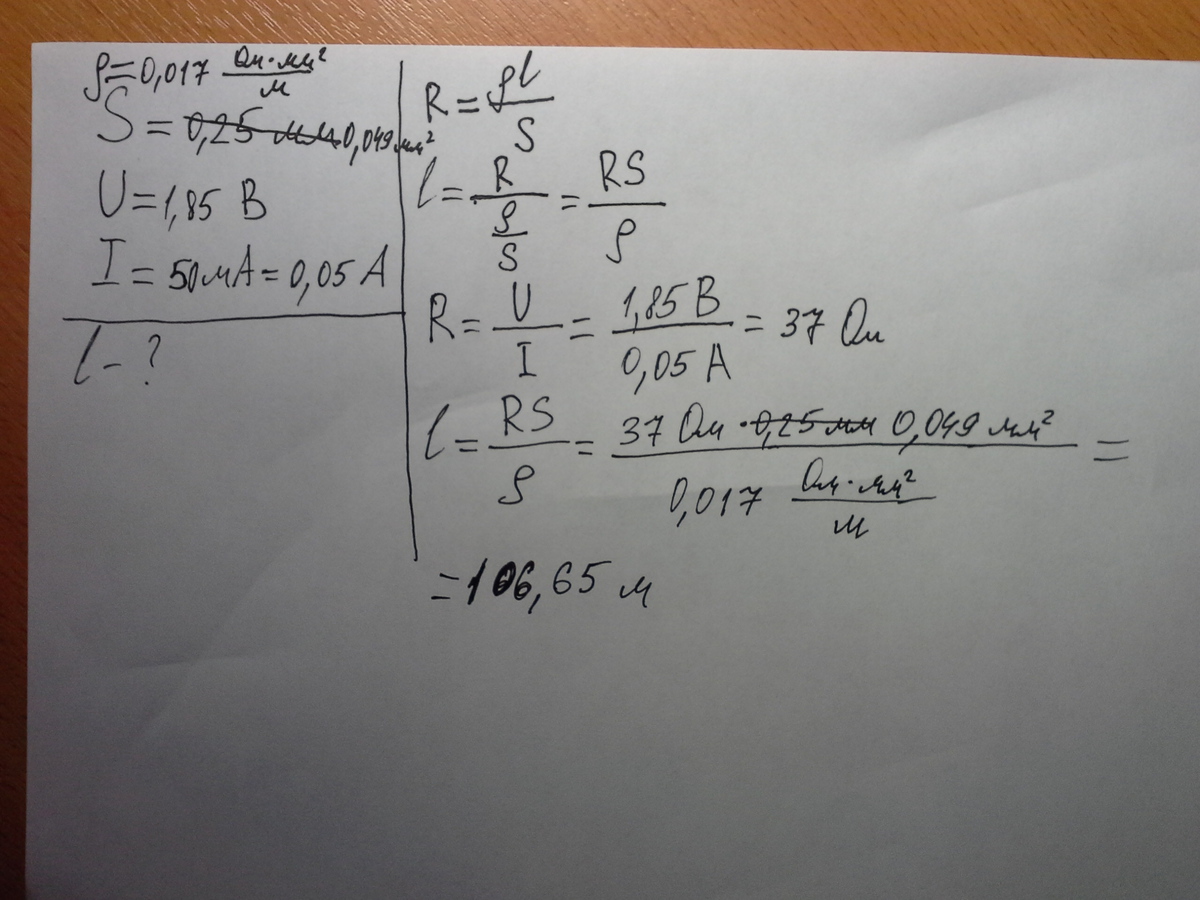 ρ = 0,017 Ом·мм²/м
S = 0,25 мм 0,049 мм²
U = 1,85 В
I = 50 мА = 0,05 А
l - ?
R = ρl/S
l = R/(ρ/S) = RS/ρ
R = U/I = 1,85 В/0,05 А = 37 Ом
l = RS/ρ = 37 Ом · 0,25 мм 0,049 мм²/0,017 Ом·мм²/м =
= 106,65 м